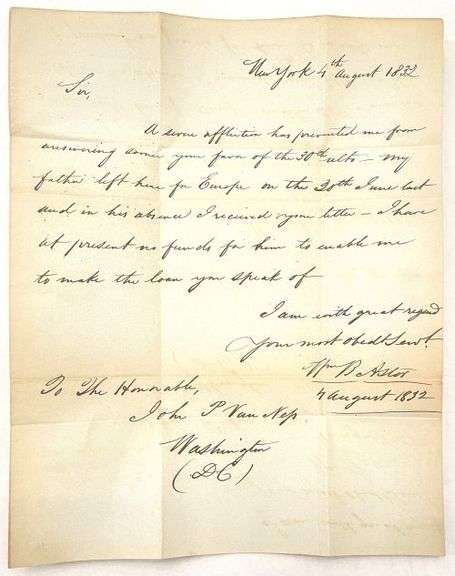 New York 4th August 1832
Sir,
A severe affliction has prevented me from
answering sooner your favor of the 30th ulto – my
father left here for Europe on the 20th June last
and in his absence I received your letter – I have
at present no funds for him to enable me
to make the loan you speak of
I am with great regard
Your most obedt Servt.
Wm B Astor
4 August 1832
To The Honorable,
John P. Van Ness
Washington
(DC)